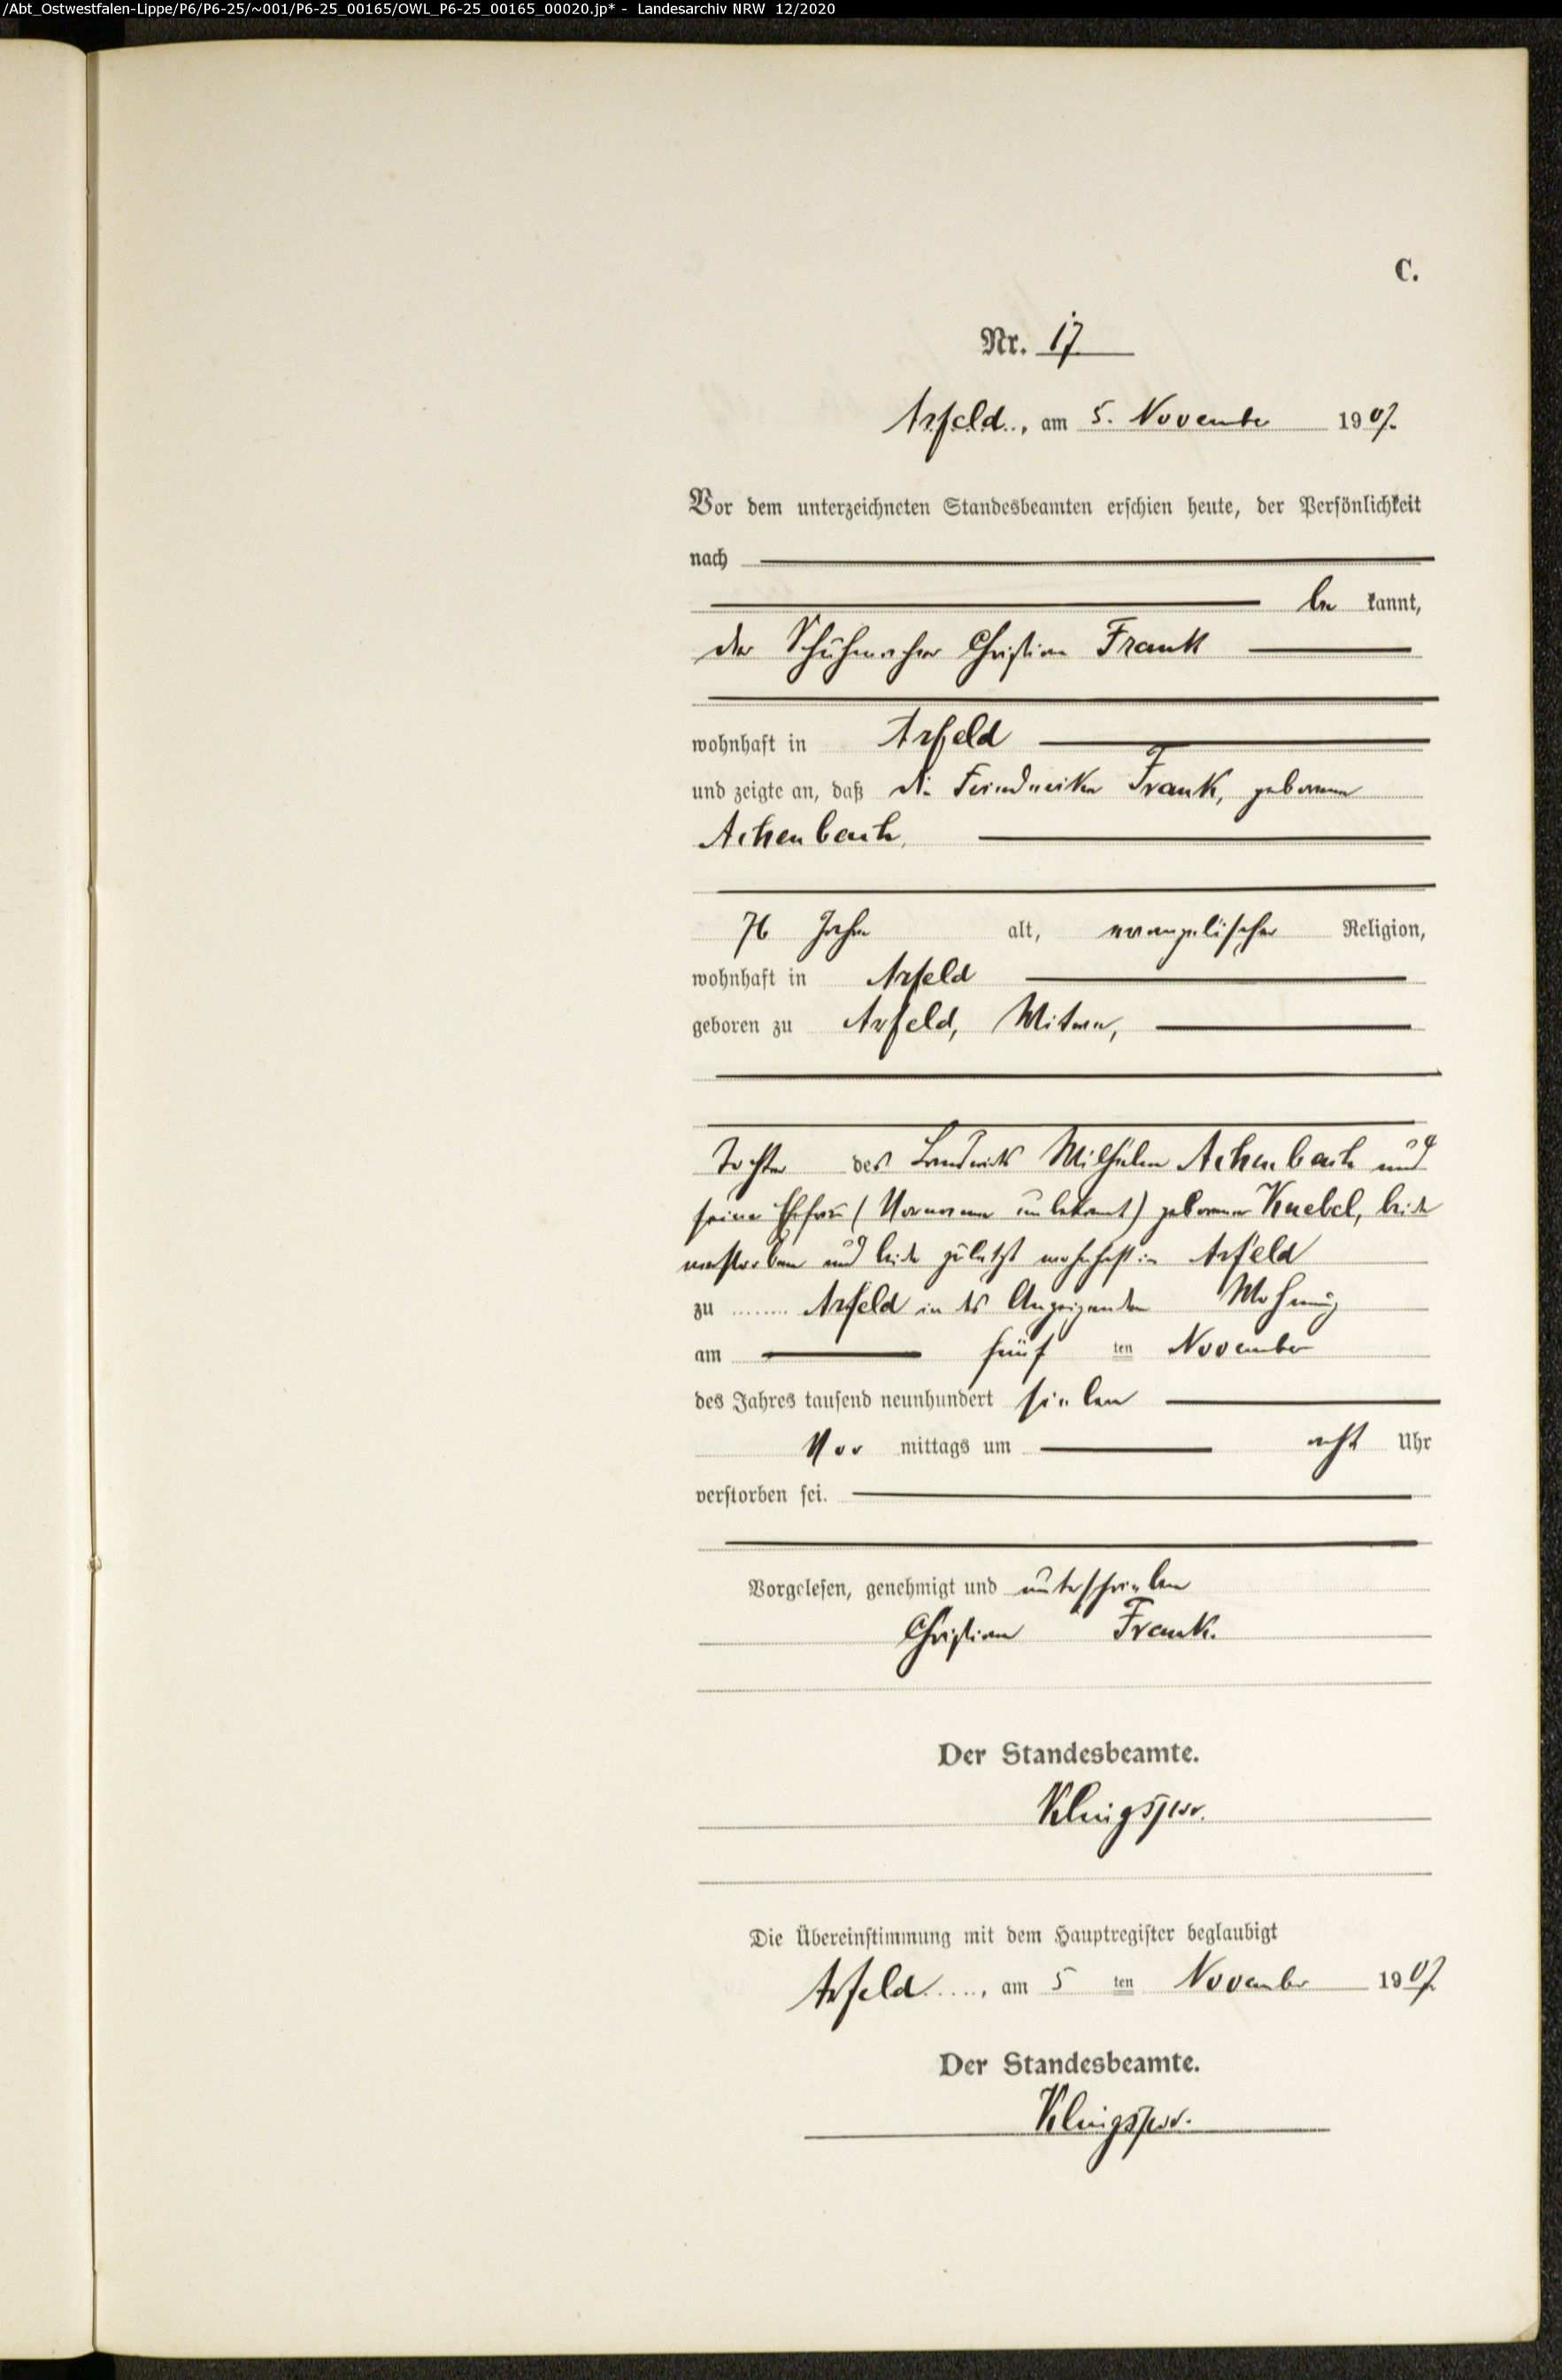 /Abt_Ostwestfalen-Lippe/P6/P6-25/~001/P6-25_00165/OWL_P6-25_00165_00020.jp* - Landesarchiv NRW 12/2020
C.
Nr. 17
Arfeld, am 5. November 1907.
Vor dem unterzeichneten Standesbeamten erschien heute, der Persönlichkeit
nach
be kannt,
der Schuhmacher Christian Frank
wohnhaft in Arfeld
und zeigte an, daß die Friederike Frank, geborene
Achenbach,
76 Jahre alt, evangelischer Religion,
wohnhaft in Arfeld
geboren zu Arfeld, Witwe,
Tochter des Landwirts Wilhelm Achenbach und
seiner Ehefrau (Vorname unbekannt) geborener Knebel, beide
verstorben und beide zuletzt wohnhaft in Arfeld
zu Arfeld in des Anzeigenden Wohnung
am fünf ten November
des Jahres tausend neunhundert sieben
Vor mittags um acht Uhr
verstorben sei.
Vorgelesen, genehmigt und unterschrieben
Christian Frank.
Der Standesbeamte.
Klingspor.
Die Übereinstimmung mit dem Hauptregister beglaubigt
Arfeld, am 5 ten November 1907
Der Standesbeamte.
Klingspor.